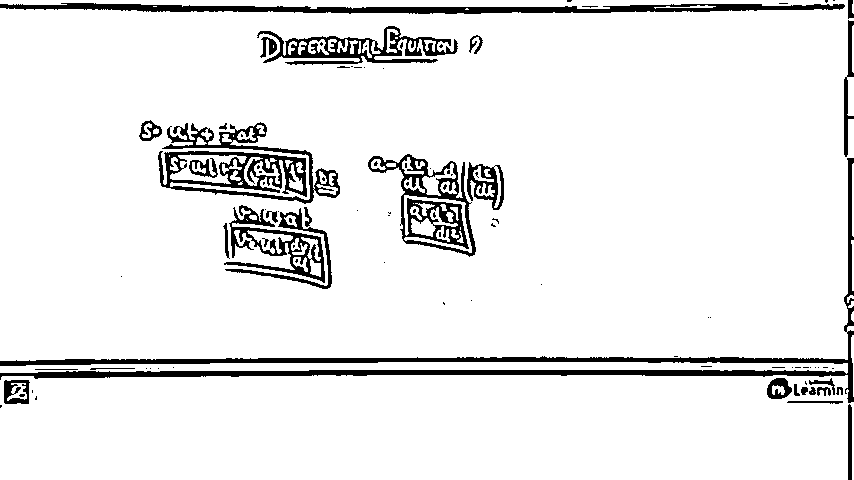 DIFFERENTIAL EQUATION ?
S = ut + ½at²
S = ut + ½(dv/dt)t² DE
v = u + at
v = u + dv/dt t
a = dv/dt = d/dt(ds/dt)
a = d²s/dt²
Learning